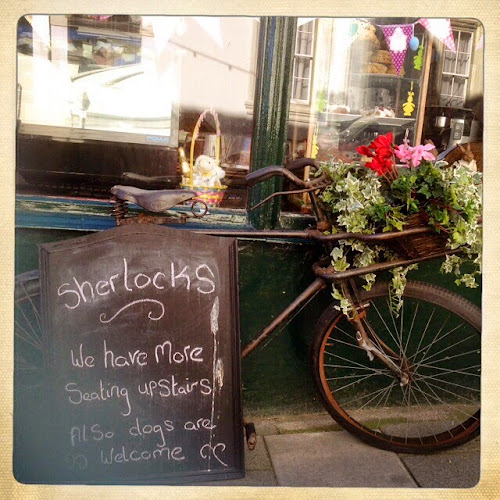 Sherlocks
We have More
Seating upstairs
Also dogs are
Welcome